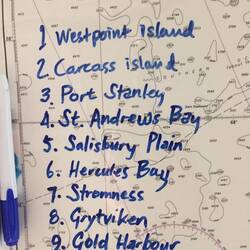 1 Westpoint Island
2 Carcass island
3. Port Stanley
4. St. Andrews Bay
5. Salisbury Plain
6. Hercules Bay
7. Stromness
8. Grytviken
9. Gold Harbour